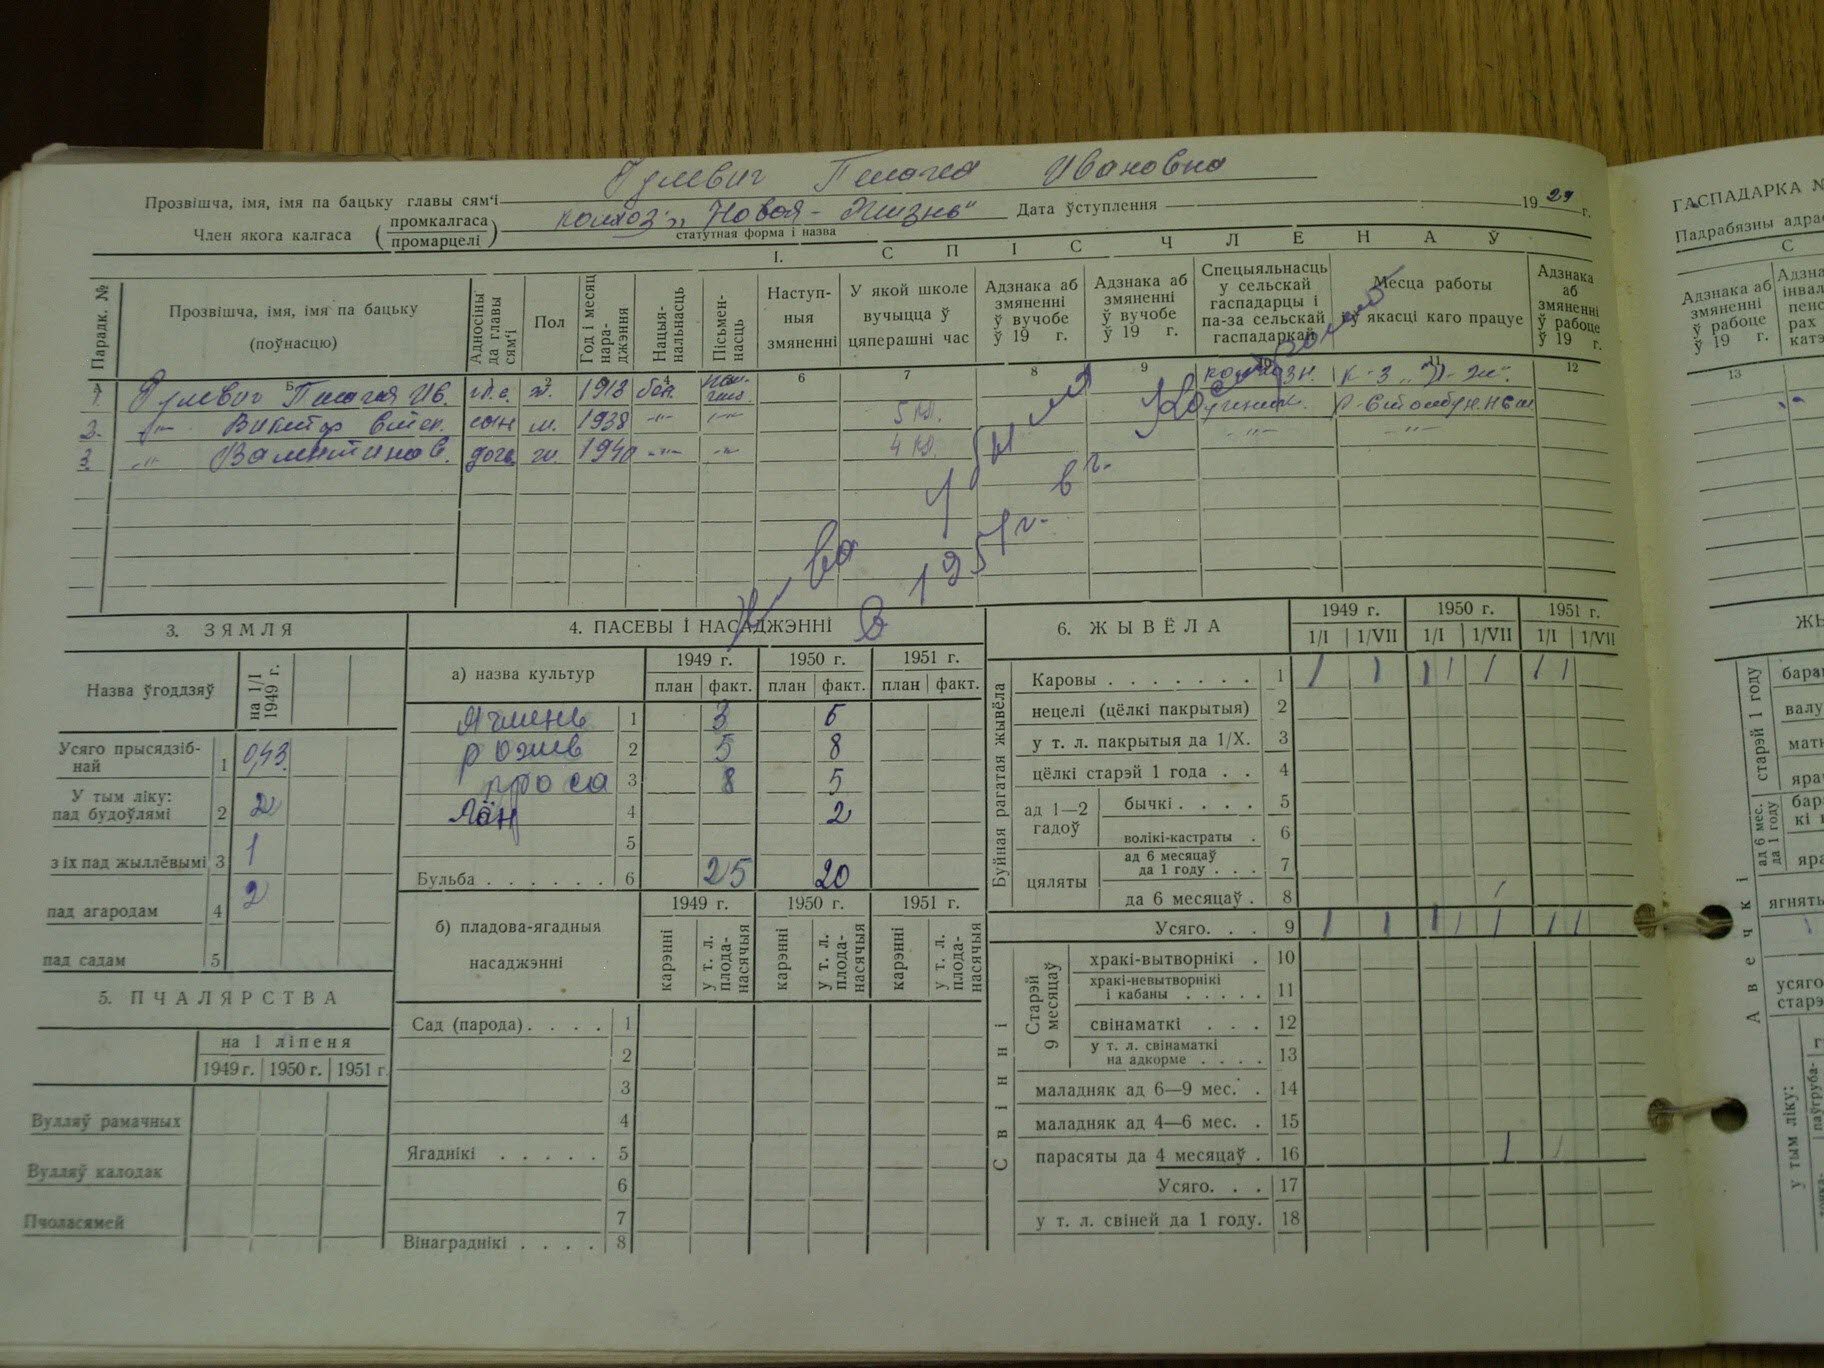 Гулевич Пелагея Ивановна
Прозвішча, імя, імя па бацьку главы сям'і
Член якога калгаса (промкалгаса промарцелі) колхоз „Новая-Жизнь" Дата ўступлення 19 29 г.
статутная форма і назва
І. СПІС ЧЛЕНАЎ
Парадк. № Прозвішча, імя, імя па бацьку (поўнасцю) Адносіны да главы сям'і Пол Год і месяц нараджэння Нацыянальнасць Пісьменнасць Наступныя змяненні У якой школе вучыцца ў цяперашні час Адзнака аб змяненні ў вучобе ў 19 г. Адзнака аб змяненні ў вучобе ў 19 г. Спецыяльнасць у сельскай гаспадарцы і па-за сельскай гаспадаркай Месца работы ў якасці каго працуе Адзнака аб змяненні ў рабоце ў 19 г.
А Б 1 2 3 4 5 6 7 8 9 10 11 12
1 Гулевич Пелагея Ив. гл. с. ж. 1913 бел. колхозн. к-з „Н-Ж".
2. -"- Виктор сын м. 1938 -"- -"- 5 кл.
3. -"- Валентина дочь ж. 1940 -"- -"- 4 кл. -"- -"-
в г.
в 1951 г.
3. ЗЯМЛЯ
Назва ўгоддзяў на 1/І 1949 г.
Усяго прысядзібнай 1 0,43
У тым ліку: пад будоўлямі 2 2
з іх пад жыллёвымі 3 1
пад агародам 4 2
пад садам 5
5. ПЧАЛЯРСТВА
на 1 ліпеня
1949 г. 1950 г. 1951 г.
Вулляў рамачных
Вулляў калодак
Пчоласямей
4. ПАСЕВЫ І НАСАДЖЭННІ
а) назва культур 1949 г. 1950 г. 1951 г.
план факт. план факт. план факт.
Ячмень 1 3 6
рожь 2 5 8
проса 3 8 5
Лён 4 2
5
Бульба . . . . . . 6 25 20
б) пладова-ягадныя насаджэнні 1949 г. 1950 г. 1951 г.
карэнні у т. л. плоданасячыя карэнні у т. л. плоданасячыя карэнні у т. л. плоданасячыя
Сад (парода) . . . . 1
2
3
4
Ягаднікі . . . . . 5
6
7
Вінаграднікі . . . . 8
6. ЖЫВЁЛА 1949 г. 1950 г. 1951 г.
1/І 1/VІІ 1/І 1/VІІ 1/І 1/VІІ
Буйная рагатая жывёла
Каровы . . . . . . . 1 1 1 1 1 1 1 1
нецелі (цёлкі пакрытыя) 2
у т. л. пакрытыя да 1/Х. 3
цёлкі старэй 1 года . . 4
ад 1—2 гадоў бычкі . . . . 5
волікі-кастраты . 6
цяляты ад 6 месяцаў да 1 году . . . 7
да 6 месяцаў . 8 1
Усяго. . . 9 1 1 1 1 1 1 1
Свінні
Старэй 9 месяцаў хракі-вытворнікі . 10
хракі-невытворнікі і кабаны . . . . . 11
свінаматкі . . . 12
у т. л. свінаматкі на адкорме . . . . 13
маладняк ад 6—9 мес. . 14
маладняк ад 4—6 мес. . 15
парасяты да 4 месяцаў . 16 1 1
Усяго. . . 17
у т. л. свіней да 1 году. 18
ГАСПАДАРКА №
Падрабязны адра
С
Адзнака аб змяненні ў рабоце ў 19 г.
13
старэй 1 году
бара
валу
матк
ярач
ад 6 мес. да 1 году
Авечкі
ягнять
усяго
старэ
у тым ліку: